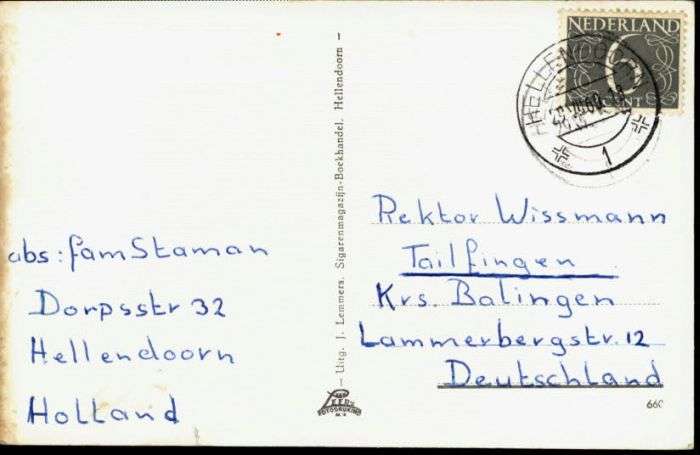 abs: fam Staman
Dorpsstr 32
Hellendoorn
Holland
— Uitg. J. Lemmers. Sigarenmagazijn-Boekhandel. Hellendoorn —
FOTODRUKIND
NEDERLAND
6
CENT
HELLENDOORN
1
Rektor Wissmann
Tailfingen
Krs. Balingen
Lammerbergstr. 12
Deutschland
660